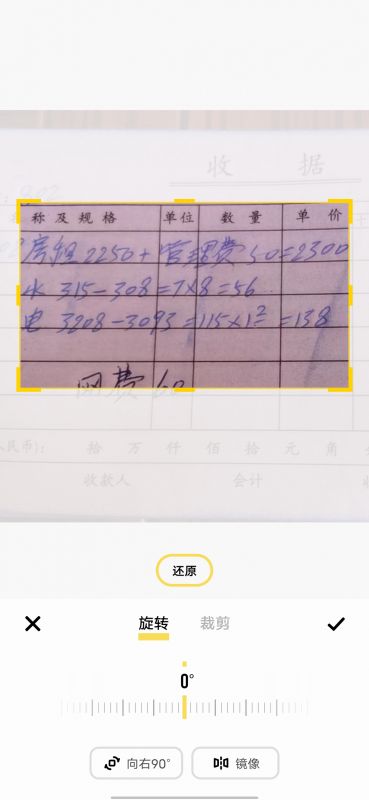 收 据
称 及 规 格 单位 数 量 单 价
房租 2250+管理费50=2300
水 315-308=7×8=56
电 3208-3093=115×1.2=138
网费 60
人民币): 拾 万 仟 佰 拾 元 角
收款人 会计
还原
旋转 裁剪
0°
向右90° 镜像